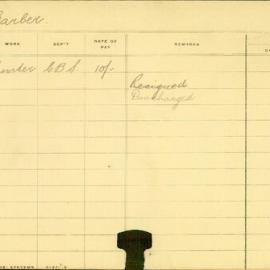 Barber
WORK DEP'T RATE OF PAY REMARKS
C.B.S. 10/-
Resigned
Discharged